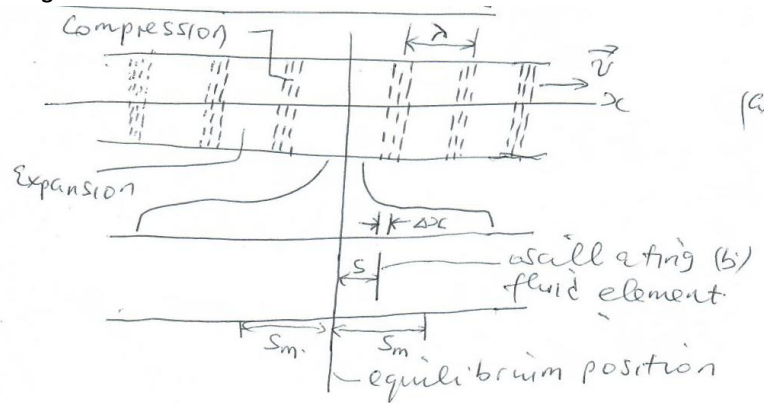 Compression
λ
v
x
Expansion
Δx
S
oscillating (b)
fluid element
Sm.
Sm
equilibrium position